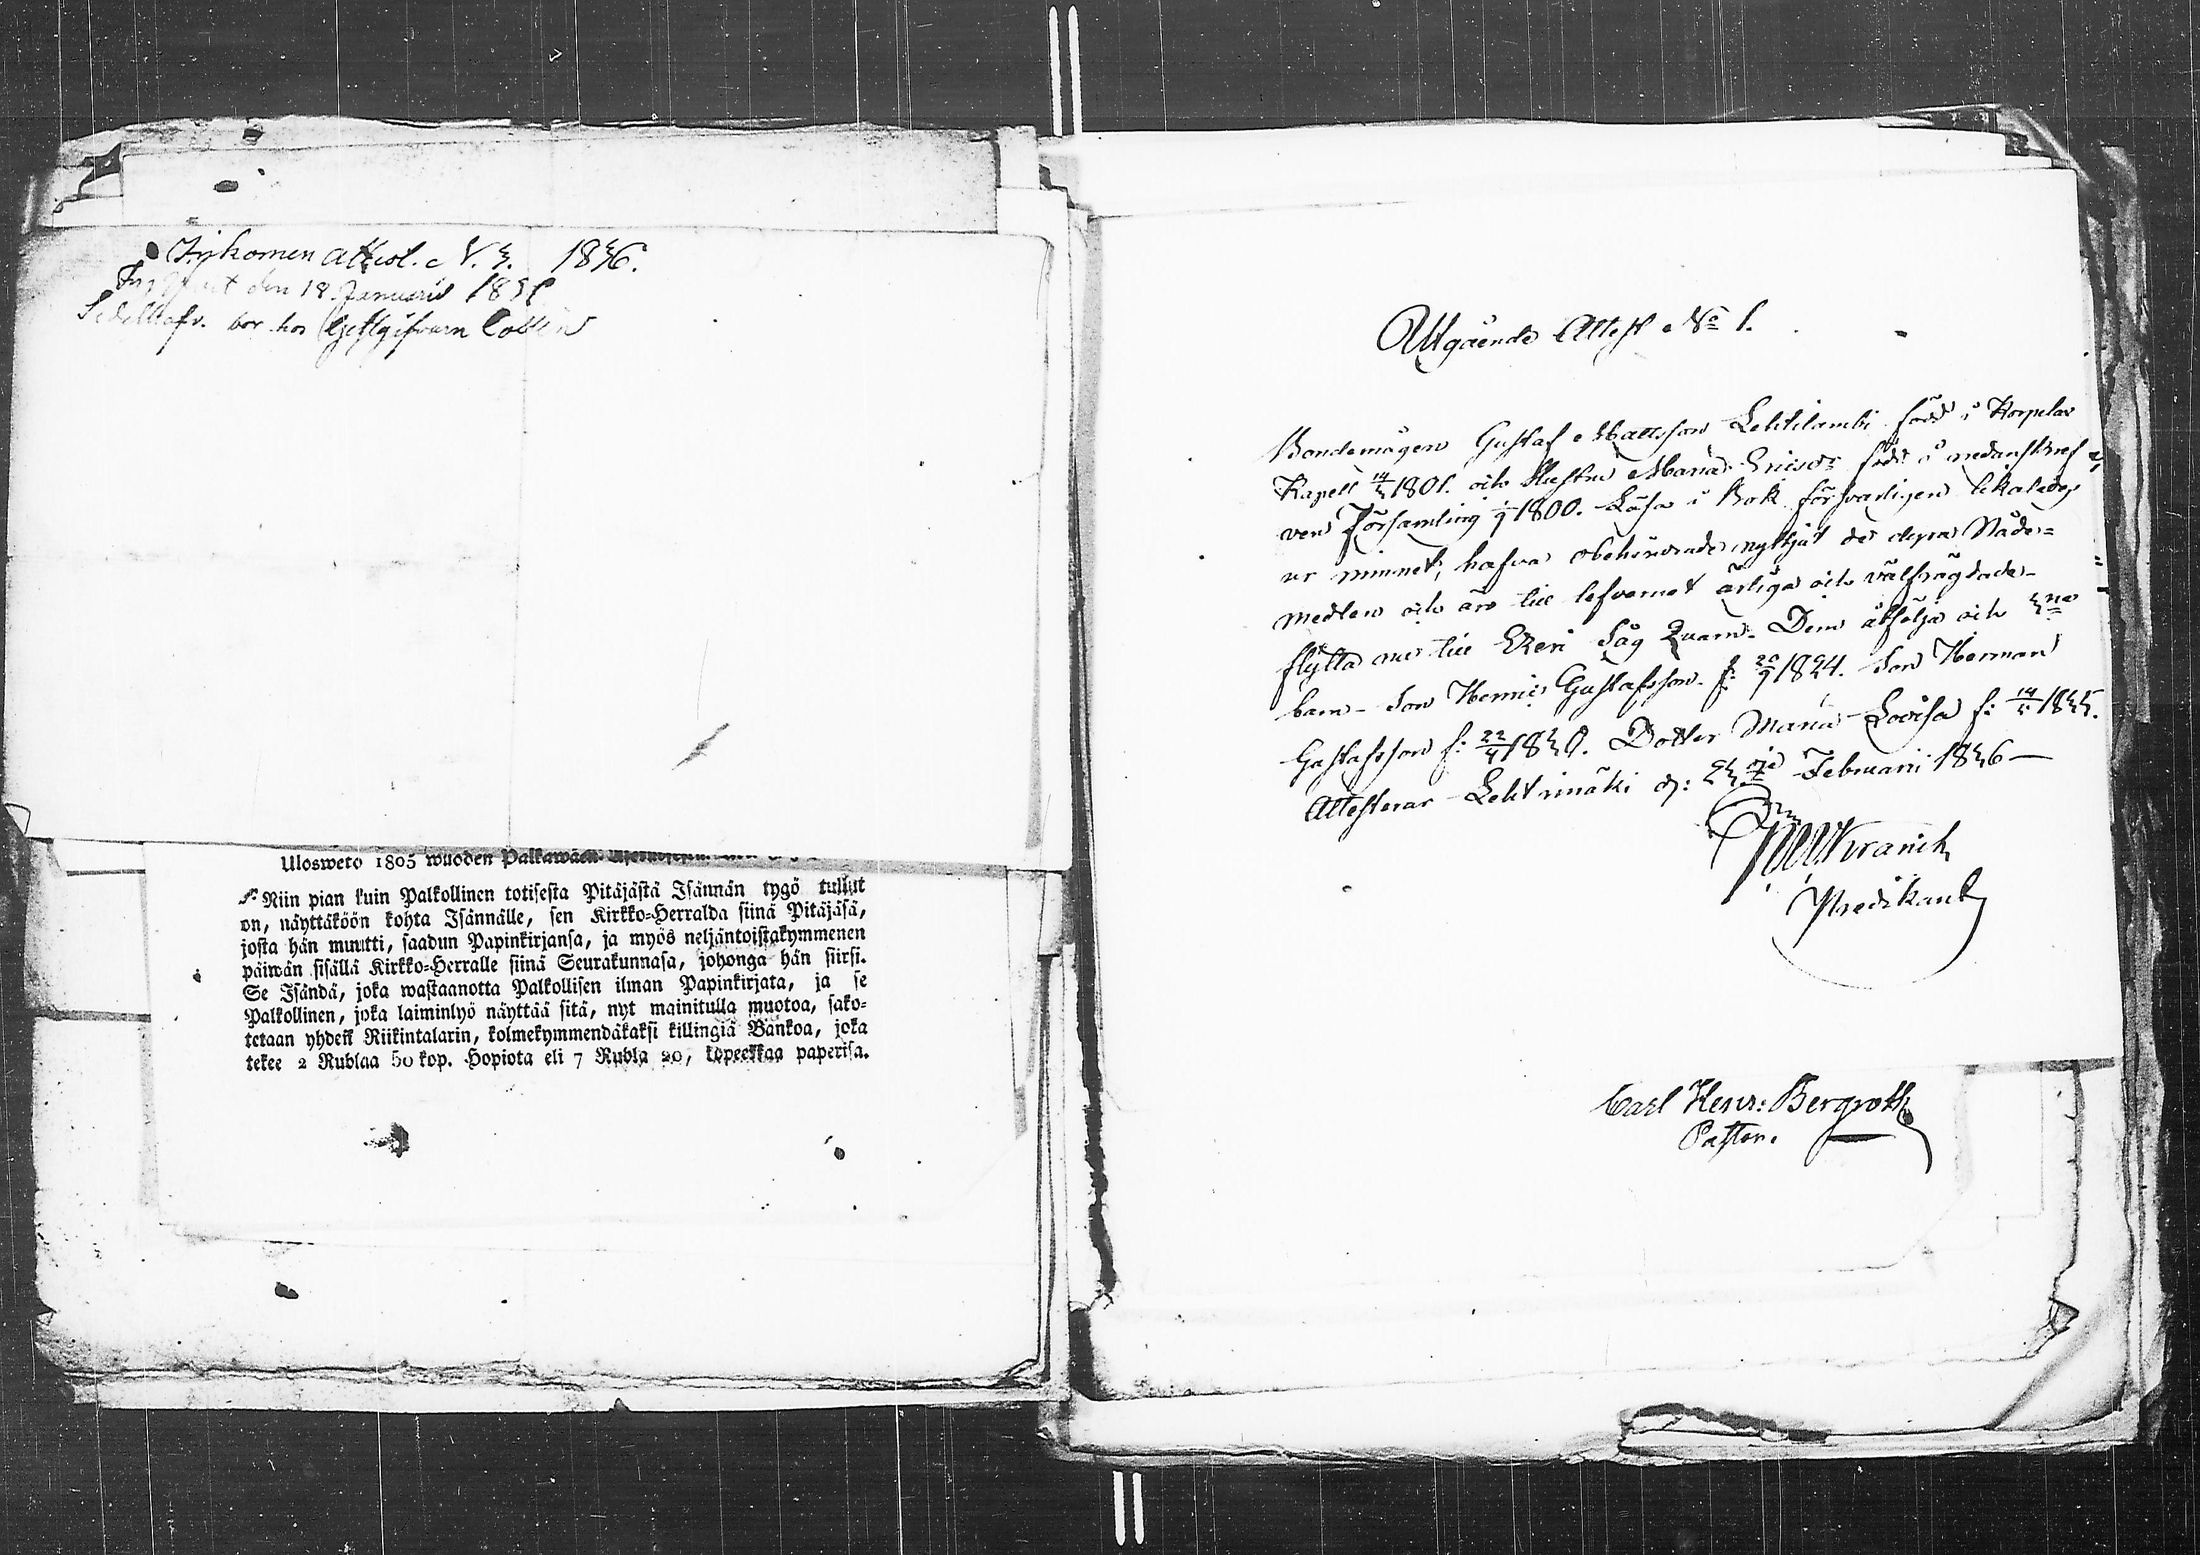 Inkomen Attest. N. 3. 1836.
den 18 Januarii
bor hos Gestgifvarn
Ulosweto 1805 wuoden
Niin pian kuin Palkollinen totisesta Pitäjästä Isännän tygö tullut
on, näyttäköön kohta Isännälle, sen Kirkko-Herralda siinä Pitäjäsä,
josta hän muutti, saadun Papinkirjansa, ja myös neljäntoistakymmenen
päiwän sisällä Kirkko-Herralle siinä Seurakunnasa, johonga hän siirsi.
Se Isändä, joka wastaanotta Palkollisen ilman Papinkirjata, ja se
Palkollinen, joka laiminlyö näyttää sitä, nyt mainitulla muotoa, sako-
tetaan yhden Riikintalarin, kolmekymmendäkaksi killingiä Bankoa, joka
tekee 2 Rublaa 50 kop. Hopiota eli 7 Rubla 20, kopeekkaa paperisa.
Utgående Attest No 1.
Bondemågen Gustaf Mattsson Lehtilambi född i Korpelax
Kapell 1801. och Hustru Maria Ericsdr född i nedanskref
ven Församling 1800. Läsa i Bok försvarligen likaledes
ur minnet, hafva obehindrade nyttjat de dyra Nåde-
medlen och äro till lefvernet ärliga och välfrägdade
flytta nu till Eken Såg Quarn. Dem åtfölja och 3ne
barn- Son Henric Gustafsson f: 20/9 1824. Son Herman
Gustafsson f: 22/4 1830. Dotter Maria Lovisa f: 1833.
Attesterar Lehtimäki d: 23 Februarii 1836
Predikant
Carl Henr: Bergroth
Pastor.